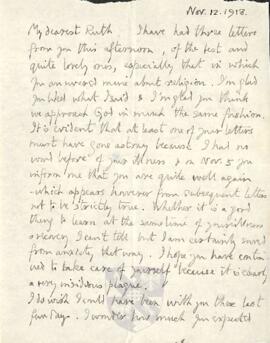 Nov. 12. 1918.
My dearest Ruth I have had three letters
from you this afternoon, of the best and
quite lovely ones, especially that in which
you answered mine about religion. I'm glad
you liked what I said & I'm glad you think
we approach God in much the same fashion.
It is evident that at least one of your letters
must have gone astray because I had no
word before of your illness & on Nov. 5 you
inform me that you are quite well again
- which appears however from subsequent letters
not to be strictly true. Whether it is a good
thing to learn at the same time of your illness
& recovery I can't tell but I am certainly saved
from anxiety that way. I hope you have contin-
ued to take care of yourself because it is clearly
a very insidious plague.
I do wish I could have been with you these last
few days. I wonder how much you expected